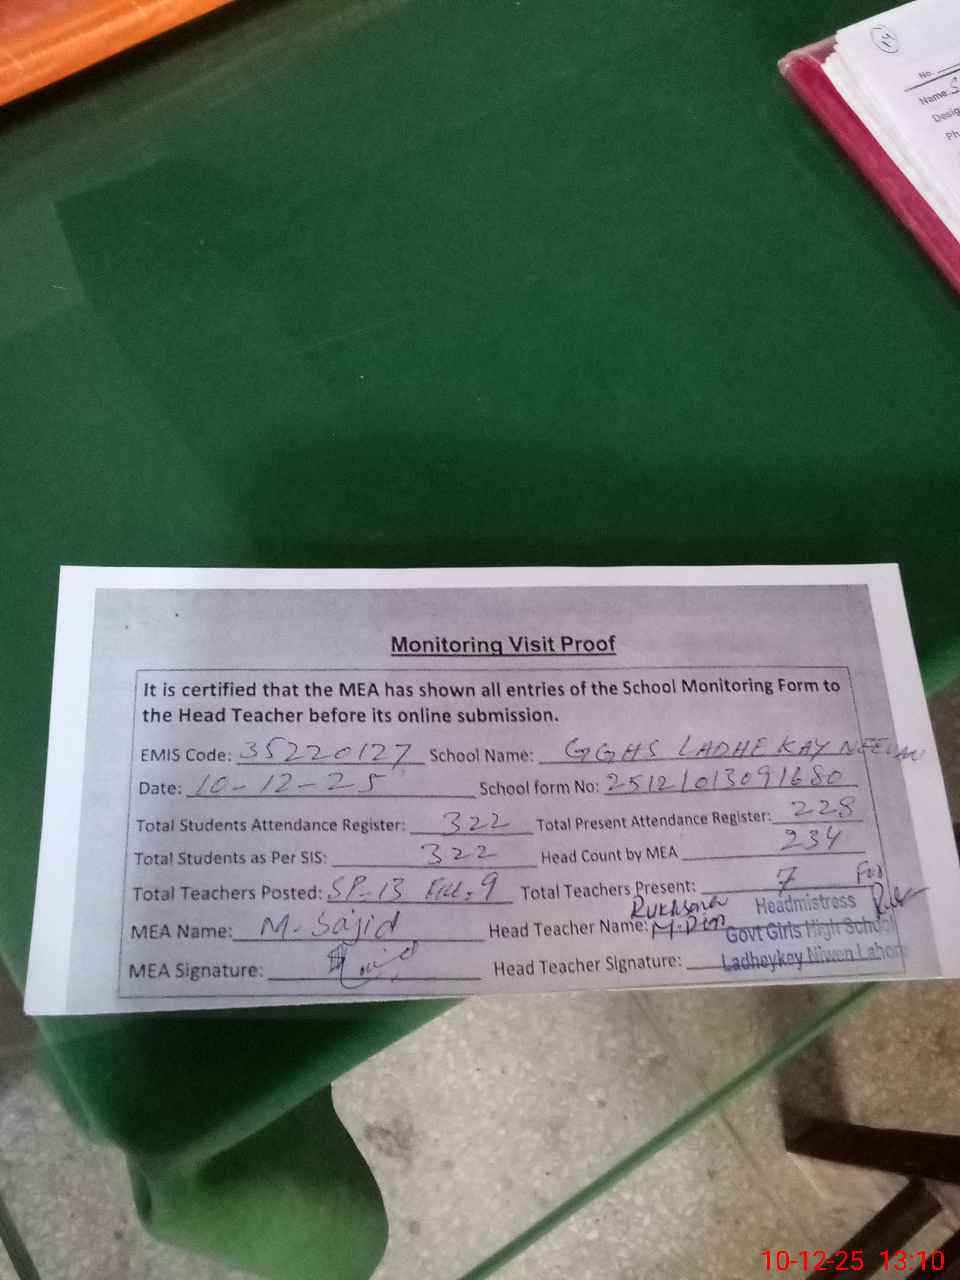 No.
Name: S
Desig
Ph
Monitoring Visit Proof
It is certified that the MEA has shown all entries of the School Monitoring Form to
the Head Teacher before its online submission.
EMIS Code: 35220127 School Name: GGHS LADHE KAY NEEWAN
Date: 10-12-25 School form No: 25121013091680
Total Students Attendance Register: 322 Total Present Attendance Register: 228
Total Students as Per SIS: 322 Head Count by MEA 234
Total Teachers Posted: SP-13 Fill:9 Total Teachers Present: 7 For
MEA Name: M. Sajid Head Teacher Name: Rukhsana M. Din Headmistress
Govt Girls High School
MEA Signature: Head Teacher Signature: Ladheykey Niwen Lahore
10-12-25 13:10